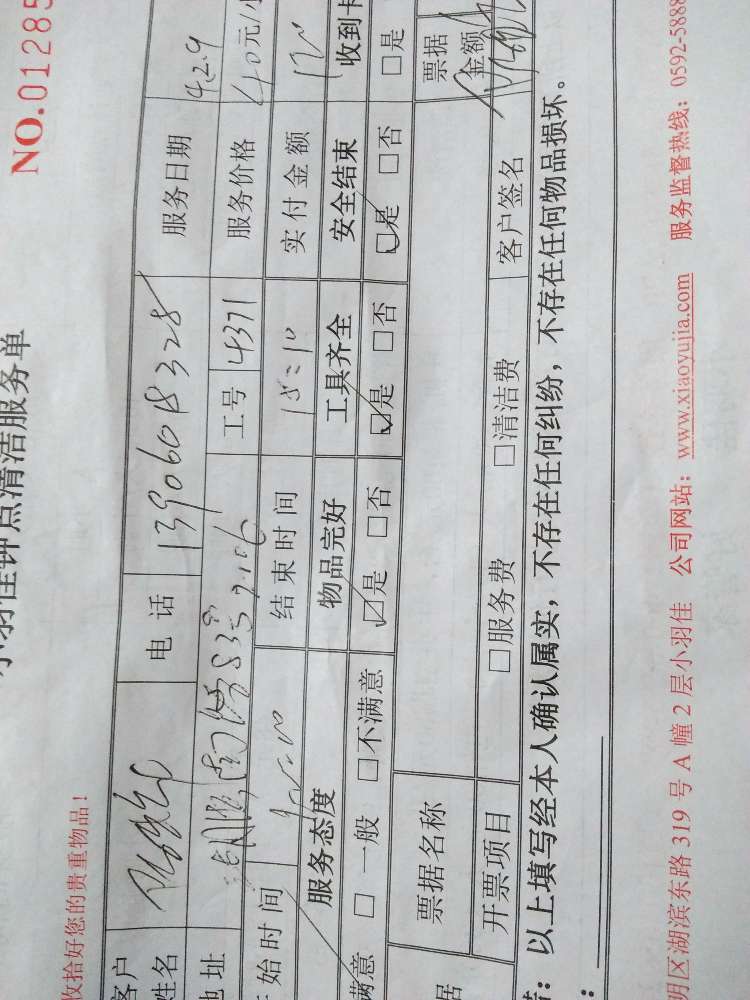 小羽佳钟点清洁服务单
NO.01285
收拾好您的贵重物品！
客户姓名 电话 13906018328 服务日期 4.29
地址 工号 4371 服务价格 40元/小
开始时间 结束时间 15:10 实付金额
服务态度 物品完好 工具齐全 安全结束 收到卡
满意 □一般 □不满意 □是 □否 □是 □否 □是 □否 □是
票据名称 票据金额
开票项目 □服务费 □清洁费 客户签名
以上填写经本人确认属实，不存在任何纠纷，不存在任何物品损坏。
明区湖滨东路 319 号 A 幢 2 层小羽佳 公司网站：www.xiaoyujia.com 服务监督热线：0592-5888